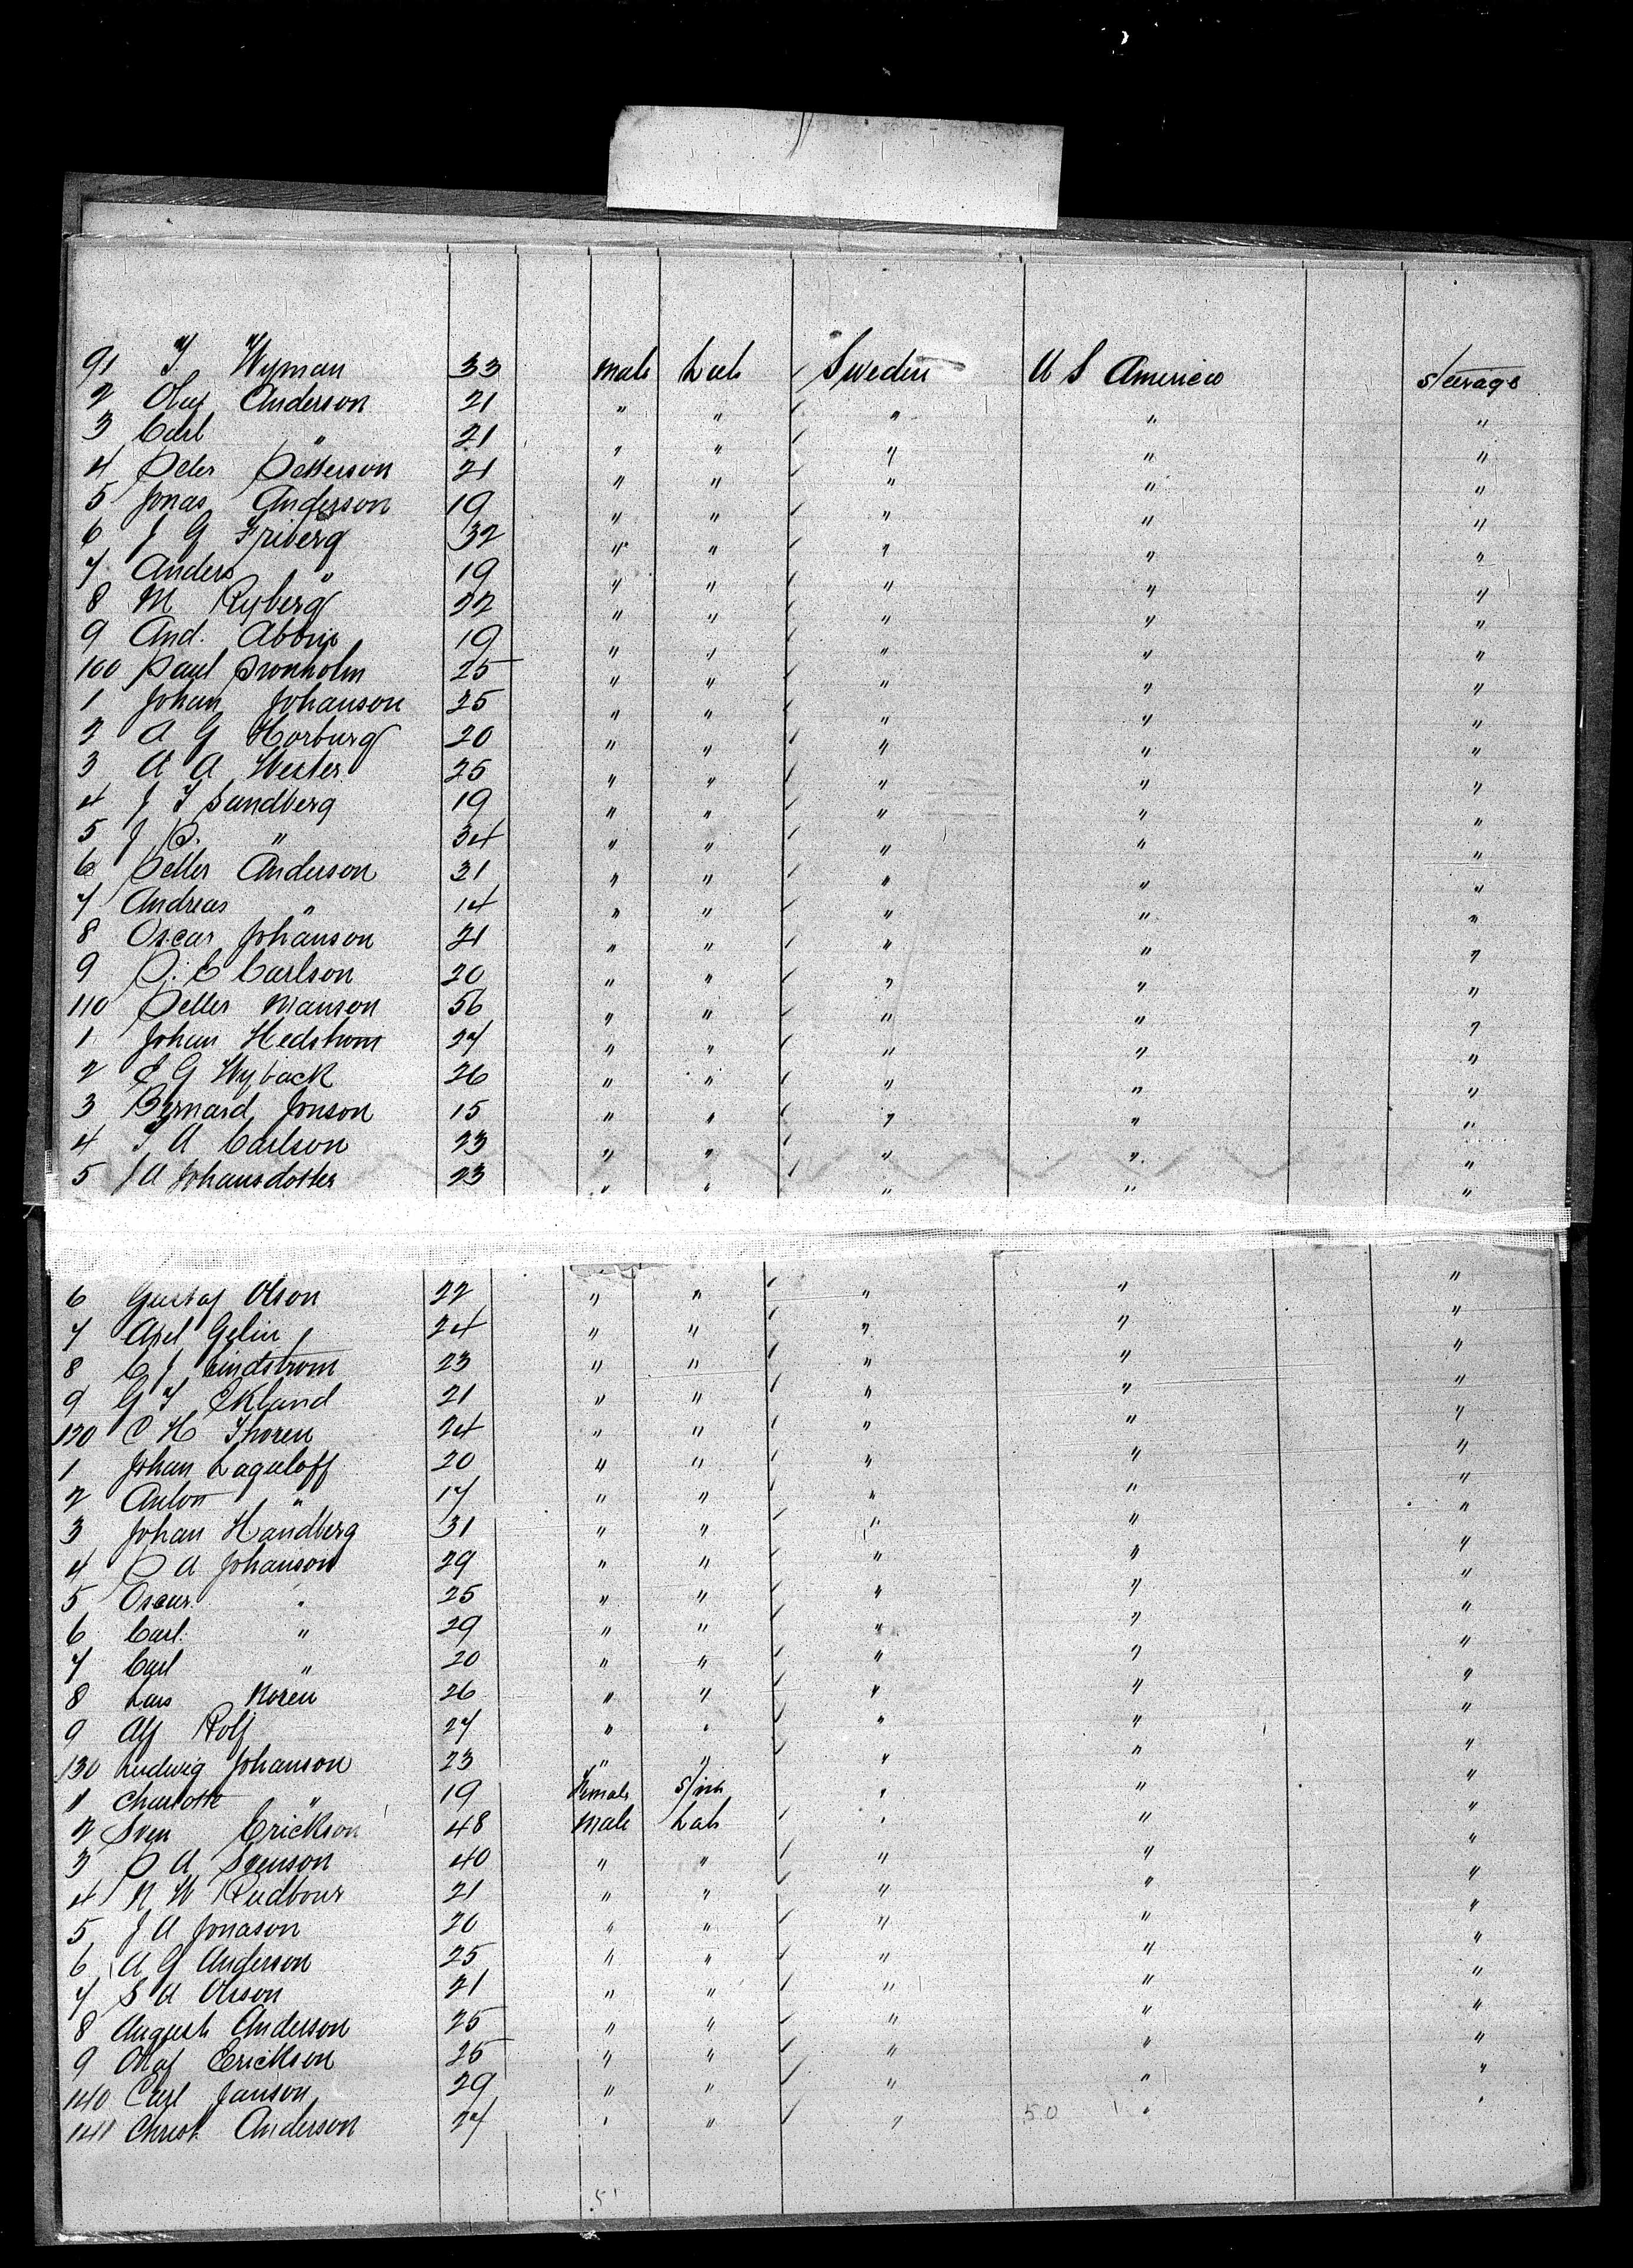 91 T. Wyman 33 male Lab Sweden U S America steerage
2 Olaf Anderson 21 " " " " "
3 Carl " 21 " " " " "
4 Peter Petterson 21 " " " " "
5 Jonas Anderson 19 " " " " "
6 J G Friberg 32 " " " " "
7 Anders " 19 " " " " "
8 M Ryberg 22 " " " " "
9 And. 19 " " " " "
100 Paul 25 " " " " "
1 Johan Johanson 25 " " " " "
2 A G Horburg 20 " " " " "
3 A A Wester 25 " " " " "
4 J T Sandberg 19 " " " " "
5 J P. " 34 " " " " "
6 Petter Anderson 31 " " " " "
7 Andreas " 14 " " " " "
8 Oscar Johanson 21 " " " " "
9 P. C Carlson 20 " " " " "
110 Petter Manson 56 " " " " "
1 Johan Hedstrom 27 " " " " "
2 E G Wyback 26 " " " " "
3 Bernard Jonson 15 " " " " "
4 T A Carlson 23 " " " " "
5 J A Johansdotter 23 " " " " "
6 Gustaf Olson 22 " " " " "
7 Axel Gelin 24 " " " " "
8 C J Lindstrom 23 " " " " "
9 G T Ekland 21 " " " " "
120 C H Thoren 24 " " " " "
1 Johan Laguloff 20 " " " " "
2 Anton " 17 " " " " "
3 Johan Handberg 31 " " " " "
4 P A Johanson 29 " " " " "
5 Oscar " 25 " " " " "
6 Carl " 29 " " " " "
7 Carl " 20 " " " " "
8 Lars Noren 26 " " " " "
9 Alf Rolf 27 " " " " "
130 Ludwig Johanson 23 " " " " "
1 Charlotte " 19 Female " " "
2 Sven Erickson 48 male Lab " " "
3 P A Svenson 40 " " " " "
4 N W 21 " " " " "
5 J A Jonason 20 " " " " "
6 A G Anderson 25 " " " " "
7 S A Olsson 21 " " " " "
8 August Anderson 25 " " " " "
9 Olaf Erickson 25 " " " " "
140 Carl Janson 29 " " " " "
141 Christ. Anderson 27 " " " 50 " "
51